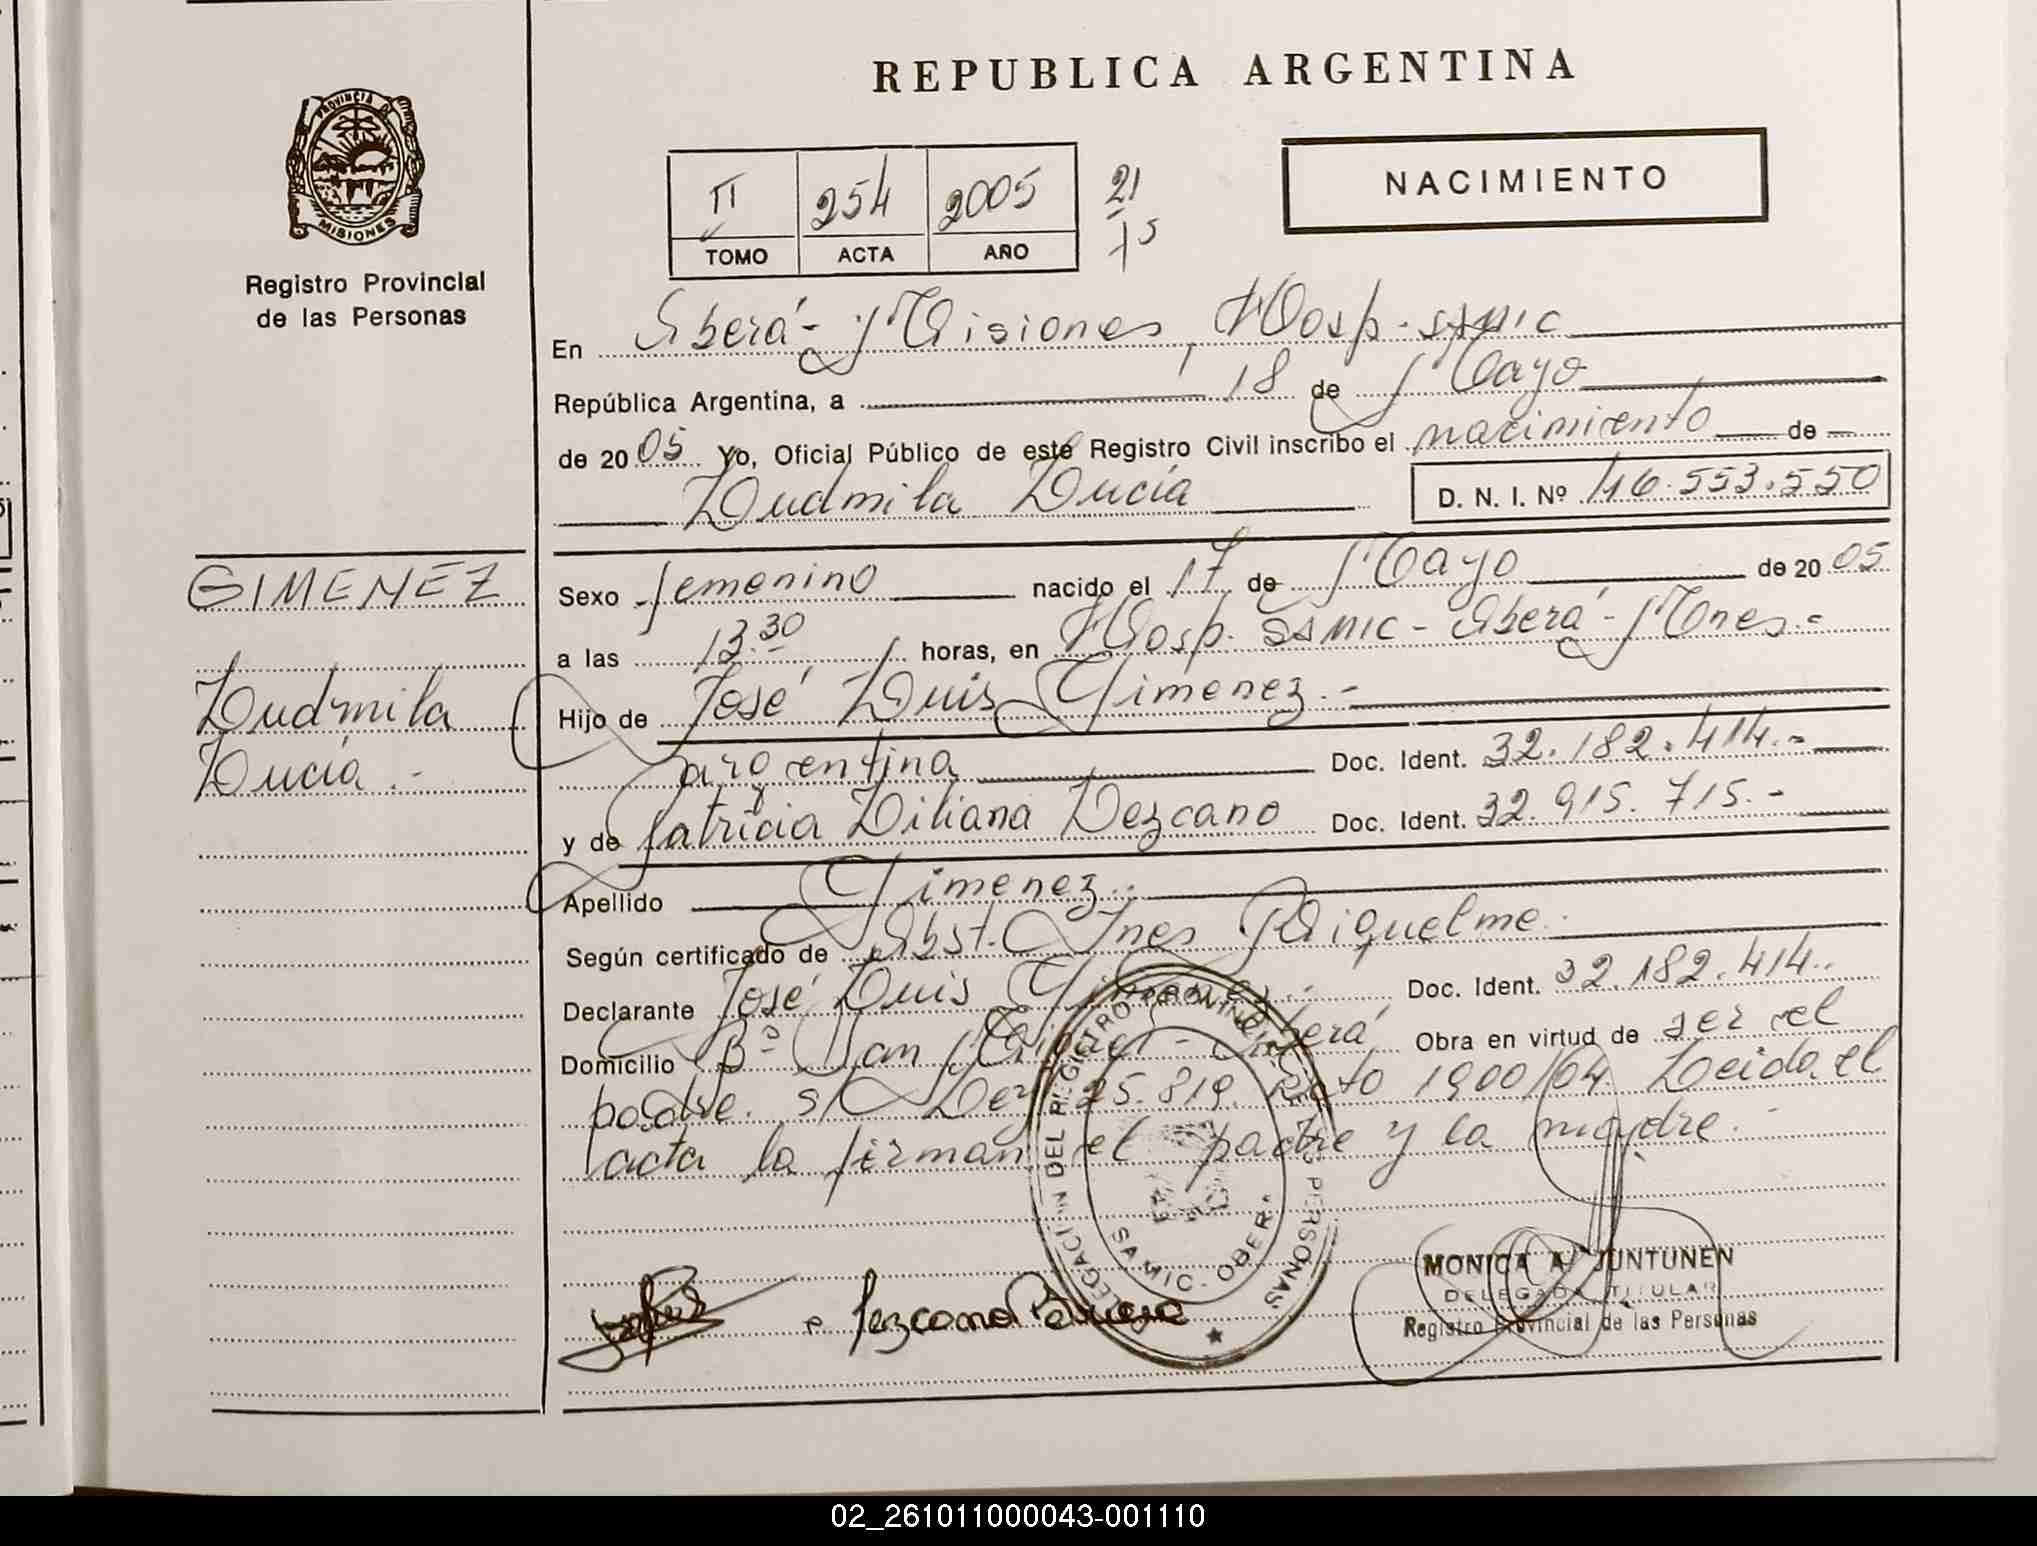 REPUBLICA ARGENTINA
PROVINCIA DE
MISIONES
Registro Provincial
de las Personas
II 254 2005
TOMO ACTA AÑO
21
15
NACIMIENTO
En Oberá - Misiones, Hosp. SAMIC
República Argentina, a 18 de Mayo
de 2005 Yo, Oficial Público de este Registro Civil inscribo el nacimiento de
Ludmila Lucía D. N. I. Nº 46.553.550
GIMENEZ
Ludmila
Lucía.-
Sexo femenino nacido el 17 de Mayo de 2005
a las 13:30 horas, en Hosp. SAMIC - Oberá - Mnes.-
Hijo de José Luis Gimenez.-
argentina Doc. Ident. 32.182.414.-
y de Patricia Liliana Lezcano Doc. Ident. 32.915.715.-
Apellido Gimenez.-
Según certificado de Obst. Ines Riquelme.
Declarante José Luis Gimenez.- Doc. Ident. 32.182.414..
Domicilio Bº San Miguel - Oberá Obra en virtud de ser el
padre. s/ Ley 25.819. Dcto 1900/04. Leida el
acta la firman el padre y la madre.-
DELEGACION DEL REGISTRO PROVINCIAL DE LAS PERSONAS
SAMIC - OBERA
Lezcano Patricia
MONICA A. JUNTUNEN
DELEGADA TITULAR
Registro Provincial de las Personas
02_261011000043-001110